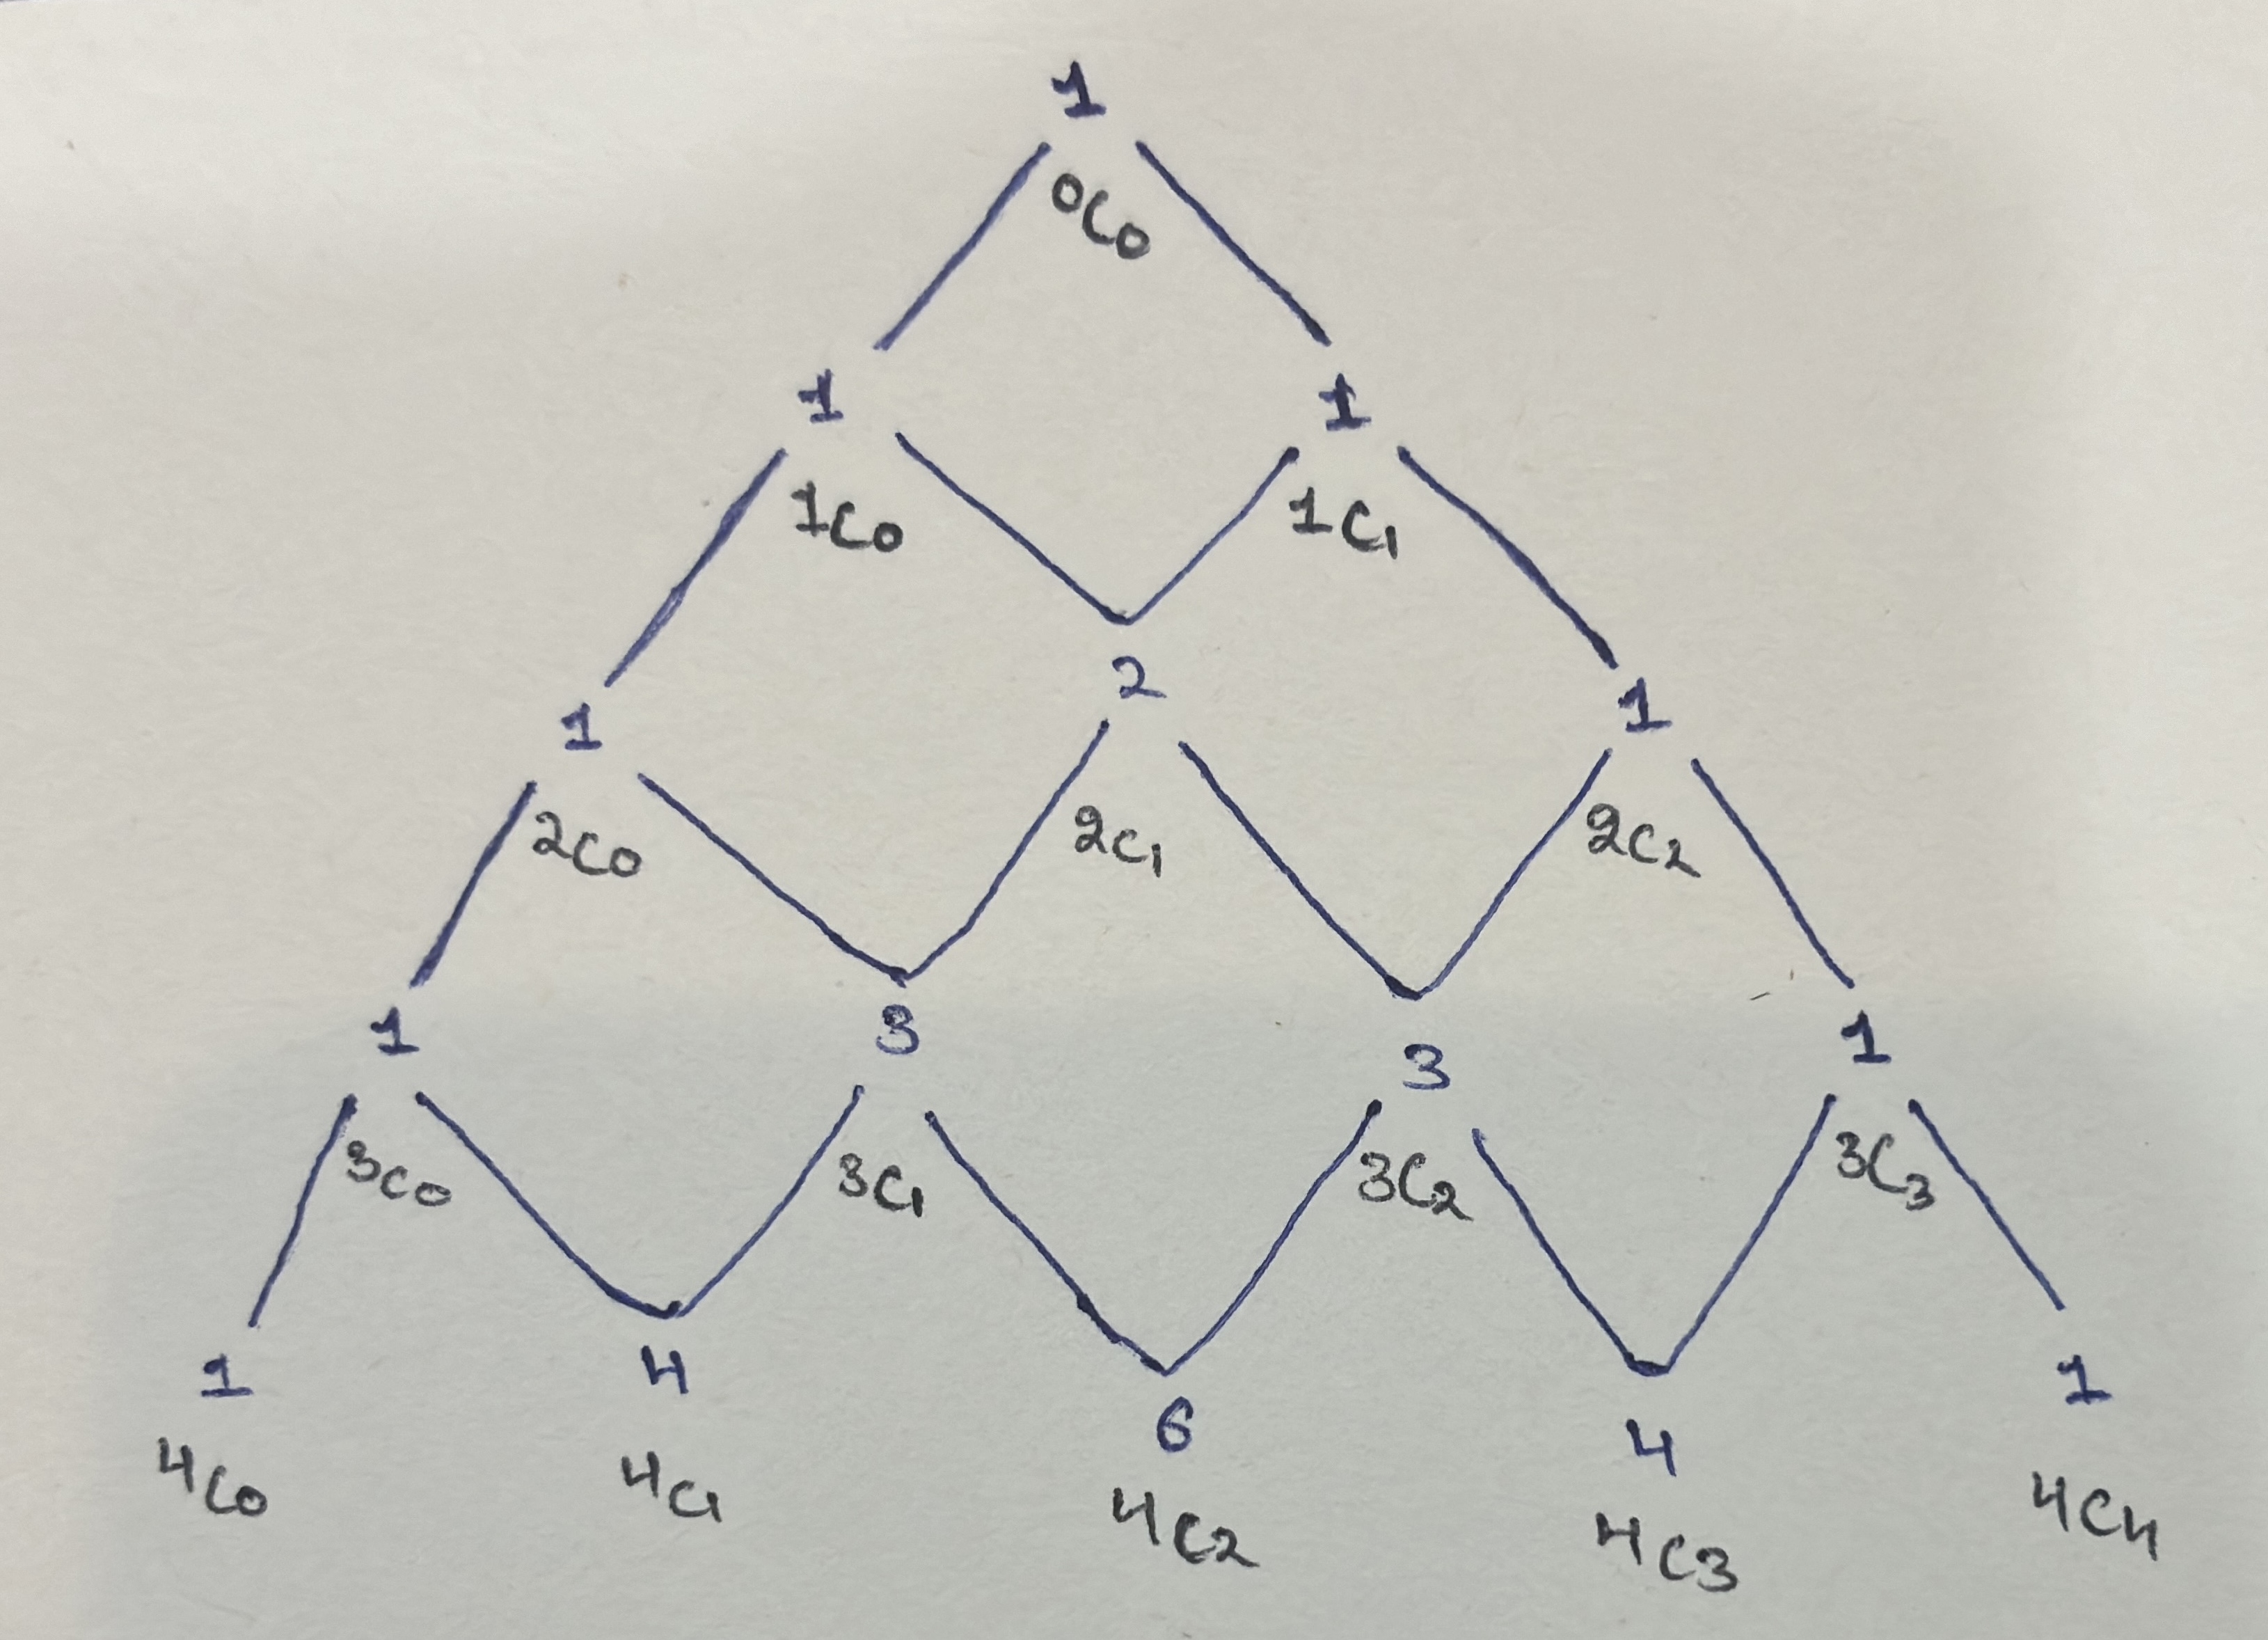 1
0C0
1 1
1C0 1C1
1 2 1
2C0 2C1 2C2
1 3 3 1
3C0 3C1 3C2 3C3
1 4 6 4 1
4C0 4C1 4C2 4C3 4C4